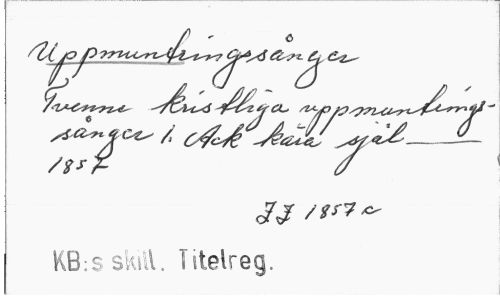 Uppmuntringssånger
Tvenne kristliga uppmuntrings-
sånger 1. Ack kära själ ——
1857
JJ 1857 c
KB:s skill. Titelreg.